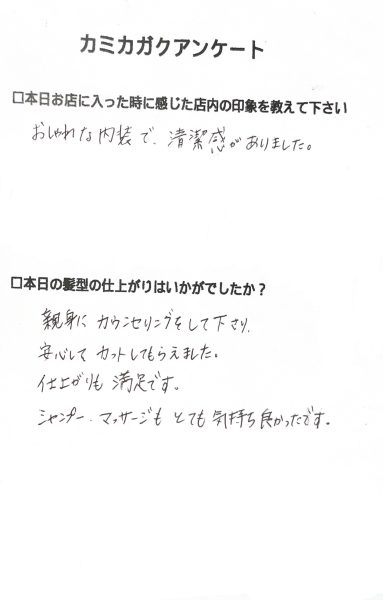 カミカガクアンケート
□本日お店に入った時に感じた店内の印象を教えて下さい
おしゃれな内装で、清潔感がありました。
□本日の髪型の仕上がりはいかがでしたか？
親身に カウンセリングをして下さり、
安心して カットしてもらえました。
仕上がりも 満足です。
シャンプー、マッサージも とても 気持ち良かったです。